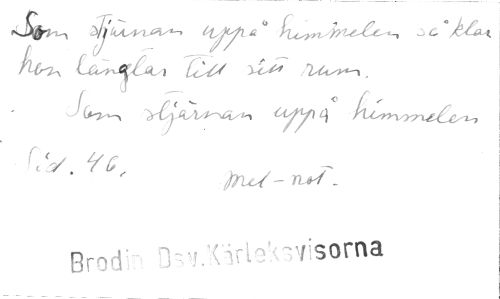 Som stjärnan uppå himmelen så klar
hon längtar till sitt rum.
Som stjärnan uppå himmelen
Sid. 46.
mel-not.
Brodin Dsv.Kärleksvisorna